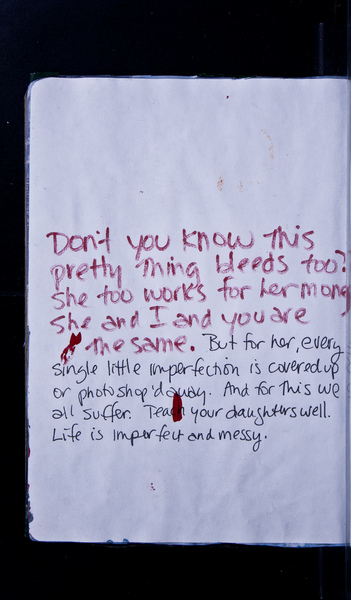 Don't you know this
pretty thing bleeds too?
She too works for her mony
She and I and you are
the same. But for her, every
single little imperfection is covered up
or photoshop'd away. And for this we
all suffer. Teach your daughters well.
Life is imperfect and messy.